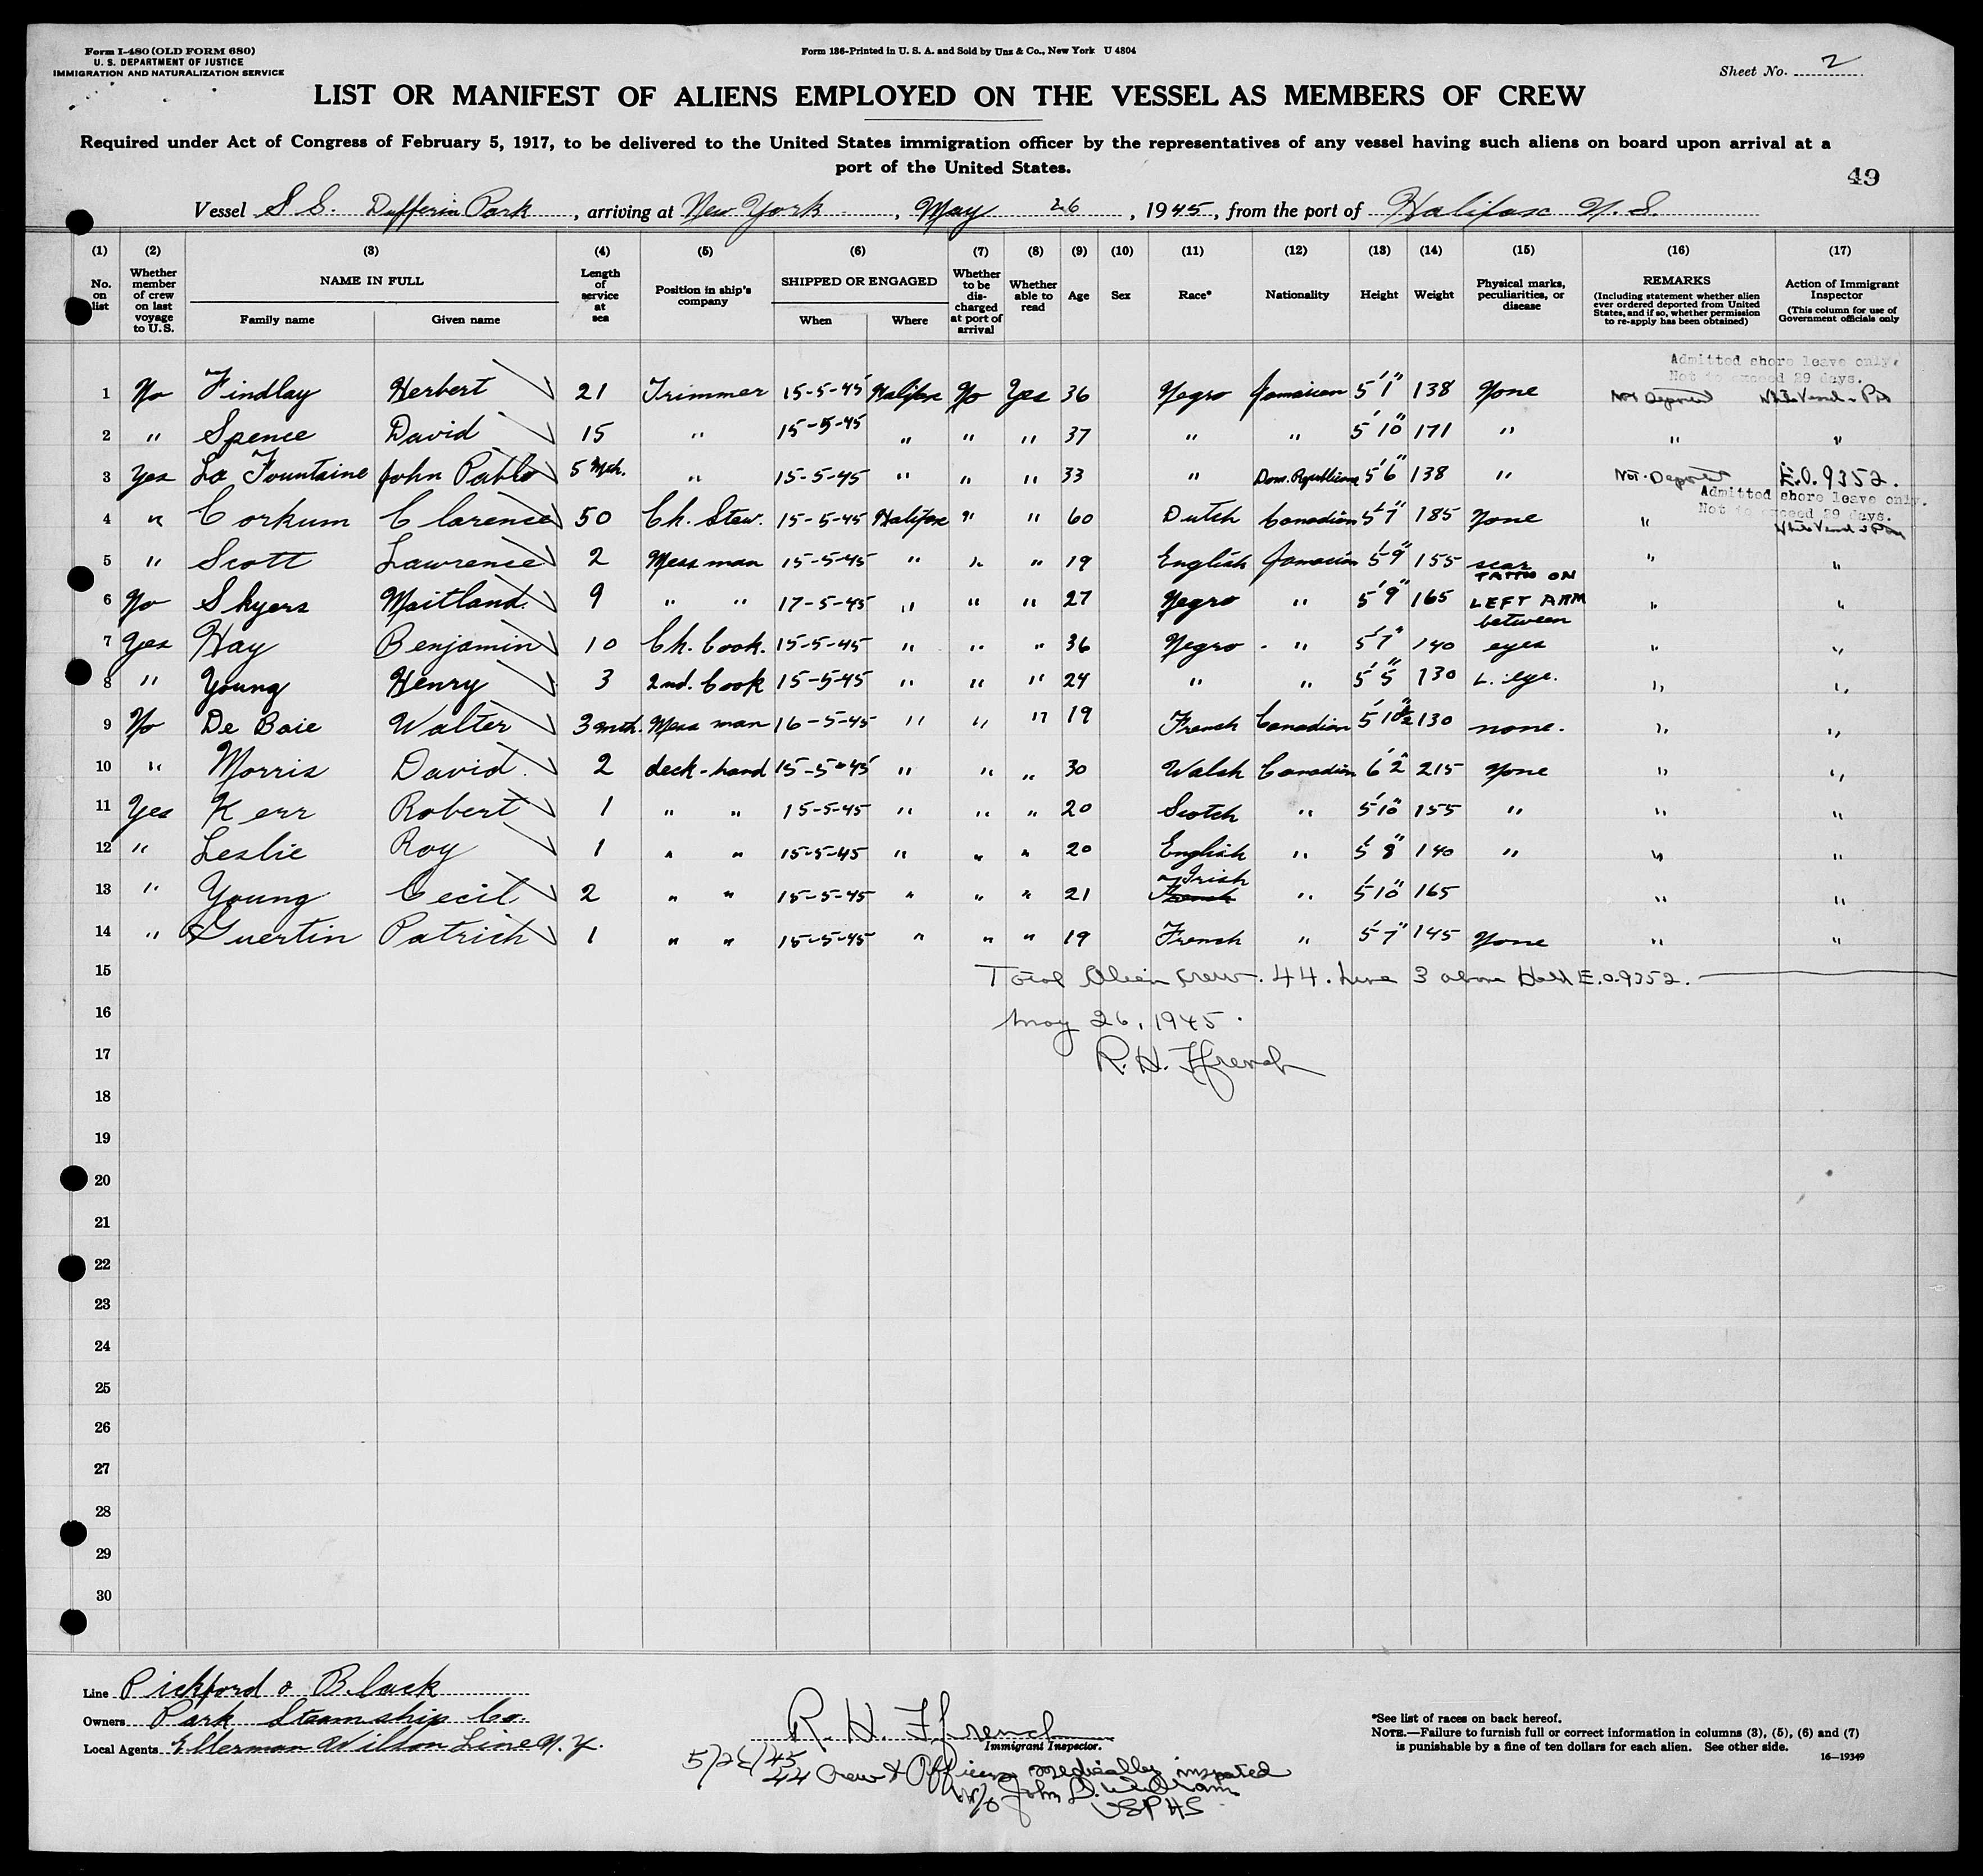 Form I-480 (OLD FORM 680)
U. S. DEPARTMENT OF JUSTICE
IMMIGRATION AND NATURALIZATION SERVICE
Form 186-Printed in U. S. A. and Sold by Unz & Co., New York U 4804
Sheet No. 2
LIST OR MANIFEST OF ALIENS EMPLOYED ON THE VESSEL AS MEMBERS OF CREW
Required under Act of Congress of February 5, 1917, to be delivered to the United States immigration officer by the representatives of any vessel having such aliens on board upon arrival at a
port of the United States.
49
Vessel S.S. Dufferin Park, arriving at New York, May 26, 1945, from the port of Halifax N. S.
(1) (2) (3) (4) (5) (6) (7) (8) (9) (10) (11) (12) (13) (14) (15) (16) (17)
No. on list
Whether member of crew on last voyage to U.S.
NAME IN FULL
Family name Given name
Length of service at sea
Position in ship's company
SHIPPED OR ENGAGED
When Where
Whether to be discharged at port of arrival
Whether able to read
Age
Sex
Race*
Nationality
Height
Weight
Physical marks, peculiarities, or disease
REMARKS
(Including statement whether alien ever ordered deported from United States, and if so, whether permission to re-apply has been obtained)
Action of Immigrant Inspector
(This column for use of Government officials only
Admitted shore leave only.
Not to exceed 29 days.
1 No Findlay Herbert 21 Trimmer 15-5-45 Halifax No Yes 36 Negro Jamaican 5'1" 138 None Not Deported
2 " Spence David 15 " 15-5-45 " " " 37 " " 5'10" 171 " " "
3 Yes La Fountaine John Pablo 5 Mth. " 15-5-45 " " " 33 " Dom. Republican 5'6" 138 " Not Deported E.O. 9352.
Admitted shore leave only.
Not to exceed 29 days.
4 " Corkum Clarence 50 Ch. Stew. 15-5-45 Halifax " " 60 Dutch Canadian 5'7" 185 None "
5 " Scott Lawrence 2 Mess man 15-5-45 " " " 19 English Jamaican 5'9" 155 scar " "
6 No Skyers Maitland. 9 " " 17-5-45 " " " 27 Negro " 5'9" 165 TATTO ON LEFT ARM " "
7 Yes Hay Benjamin 10 Ch. Cook. 15-5-45 " " " 36 Negro - " 5'7" 140 between eyes " "
8 " Young Henry 3 2nd. Cook 15-5-45 " " " 24 " " 5'5" 130 L. eye. " "
9 No De Baie Walter 3 mth. Mess man 16-5-45 " " " 19 French Canadian 5'10½" 130 none. " "
10 " Morris David. 2 deck-hand 15-5-45 " " " 30 Walsh Canadian 6'2" 215 None " "
11 Yes Kerr Robert 1 " " 15-5-45 " " " 20 Scotch " 5'10" 155 " " "
12 " Leslie Roy 1 " " 15-5-45 " " " 20 English " 5'8" 140 " " "
13 " Young Cecil 2 " " 15-5-45 " " " 21 Irish French " 5'10" 165 " "
14 " Guertin Patrick 1 " " 15-5-45 " " " 19 French " 5'7" 145 None " "
15 Total Alien crew. 44. Line 3 above Held E.O.9352.
16 May 26, 1945.
17 R. H. Ffrench
18
19
20
21
22
23
24
25
26
27
28
29
30
Line Pickford & Black
Owners Park Steamship Co.
Local Agents Ellerman Wilson Line N.Y.
R. H. Ffrench
Immigrant Inspector.
44 Crew & Officers medically inspected
USPHS
*See list of races on back hereof.
NOTE.—Failure to furnish full or correct information in columns (3), (5), (6) and (7)
is punishable by a fine of ten dollars for each alien. See other side.
16—19349